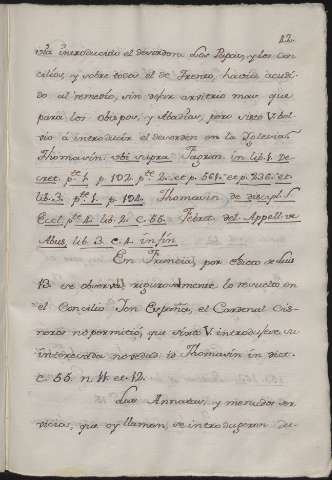 22.
via introducido el desorden. Los Papas, y los Con-
cilios, y sobre todos el de Trento, havia acudi-
do al remedio, sin dejar arvitrio mas que
para los obispos, y Abadias, pero Sixto V. bol-
vio á introducir el desorden en la Iglesia.
Thomasin ubi supra Fagnan. in lib. 1. De-
cret. p.te 1. p. 192. p.te 2. et p. 561. et p. 236. et
lib. 3. p.te 1. p. 194. Thomasin de discipl.
Eccl. p.te 4. lib. 2. c. 55. Febret. del Appell. ve
Abus. lib. 3. c. 1. in fin.
En Francia, por edicto de Luis
13. se observa rigurosamente lo resuelto en
el Concilio. En España, el Cardenal Cis-
neros no permitió, que Sixto V. introdugese su
interesada novedad. id. Thomasin in dict.
c. 55. n. 11. et 12.
Las Annatas, y menudos ser-
vicios, que oy llaman, se introdugeron de-